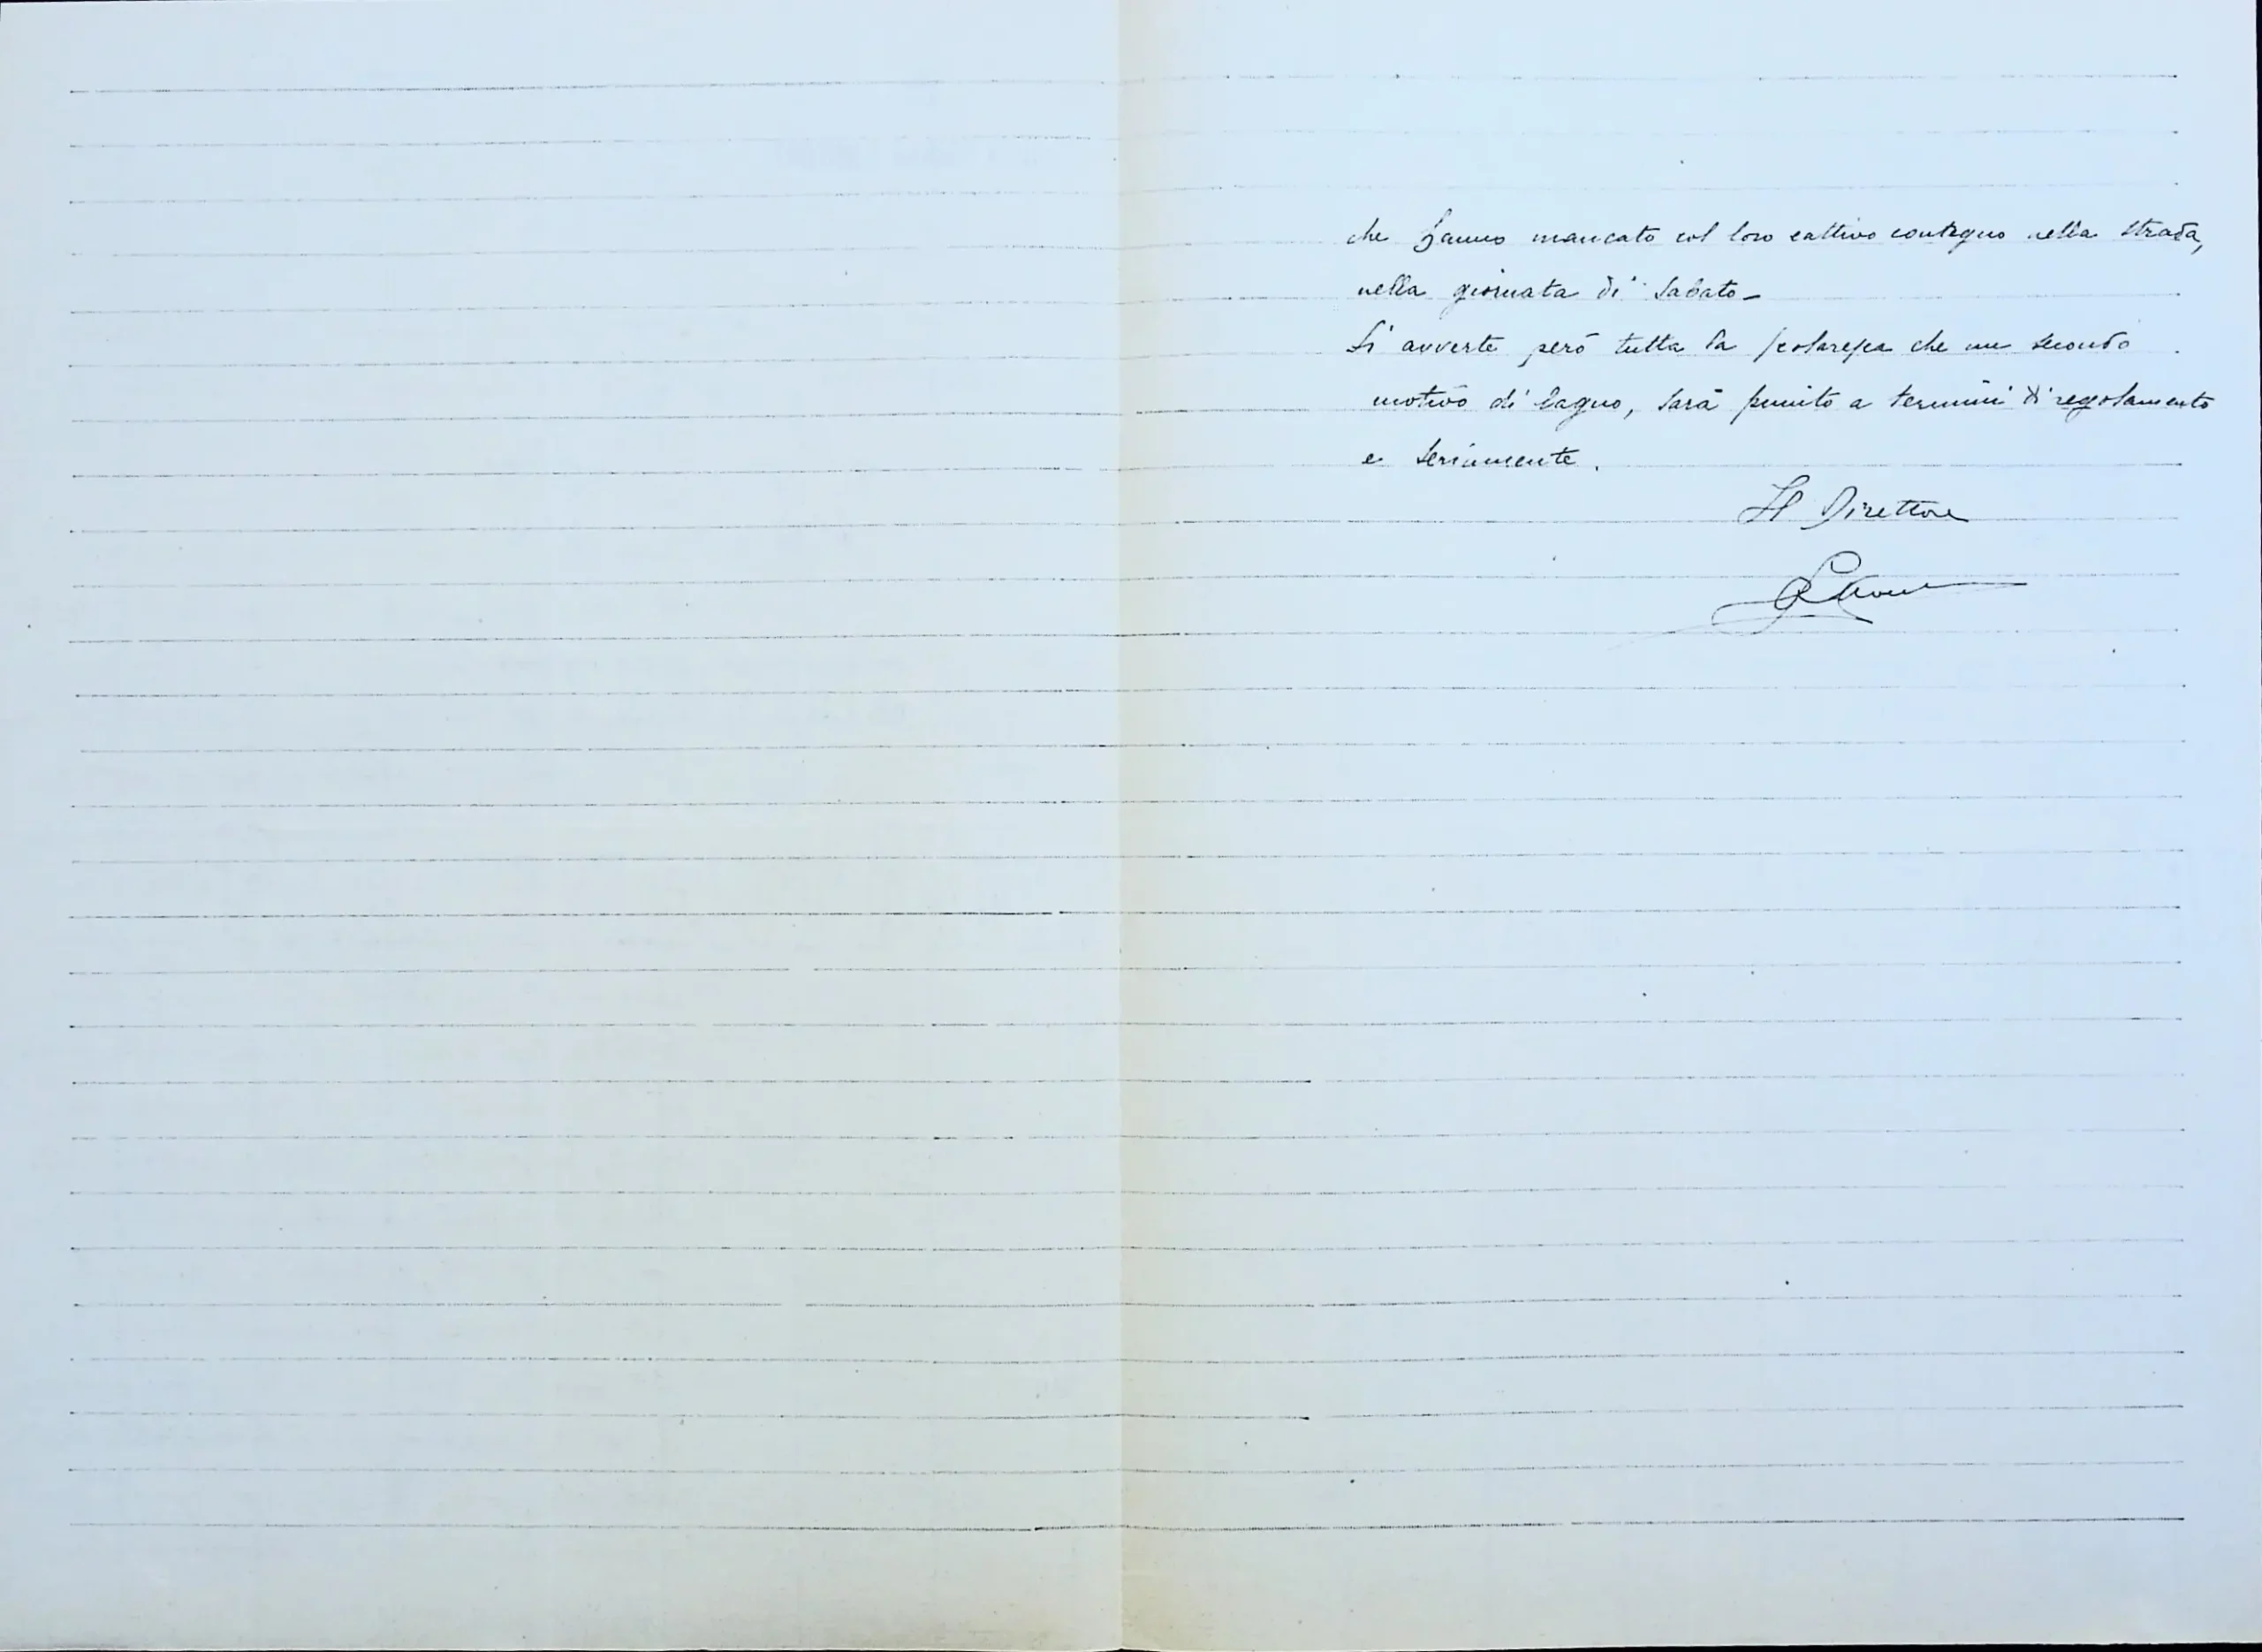 che hanno mancato col loro cattivo contegno nella strada,
nella giornata di Sabato -
Si avverte però tutta la scolaresca che un secondo
motivo di lagno, sarà punito a termini di regolamento
e seriamente.
Il Direttore